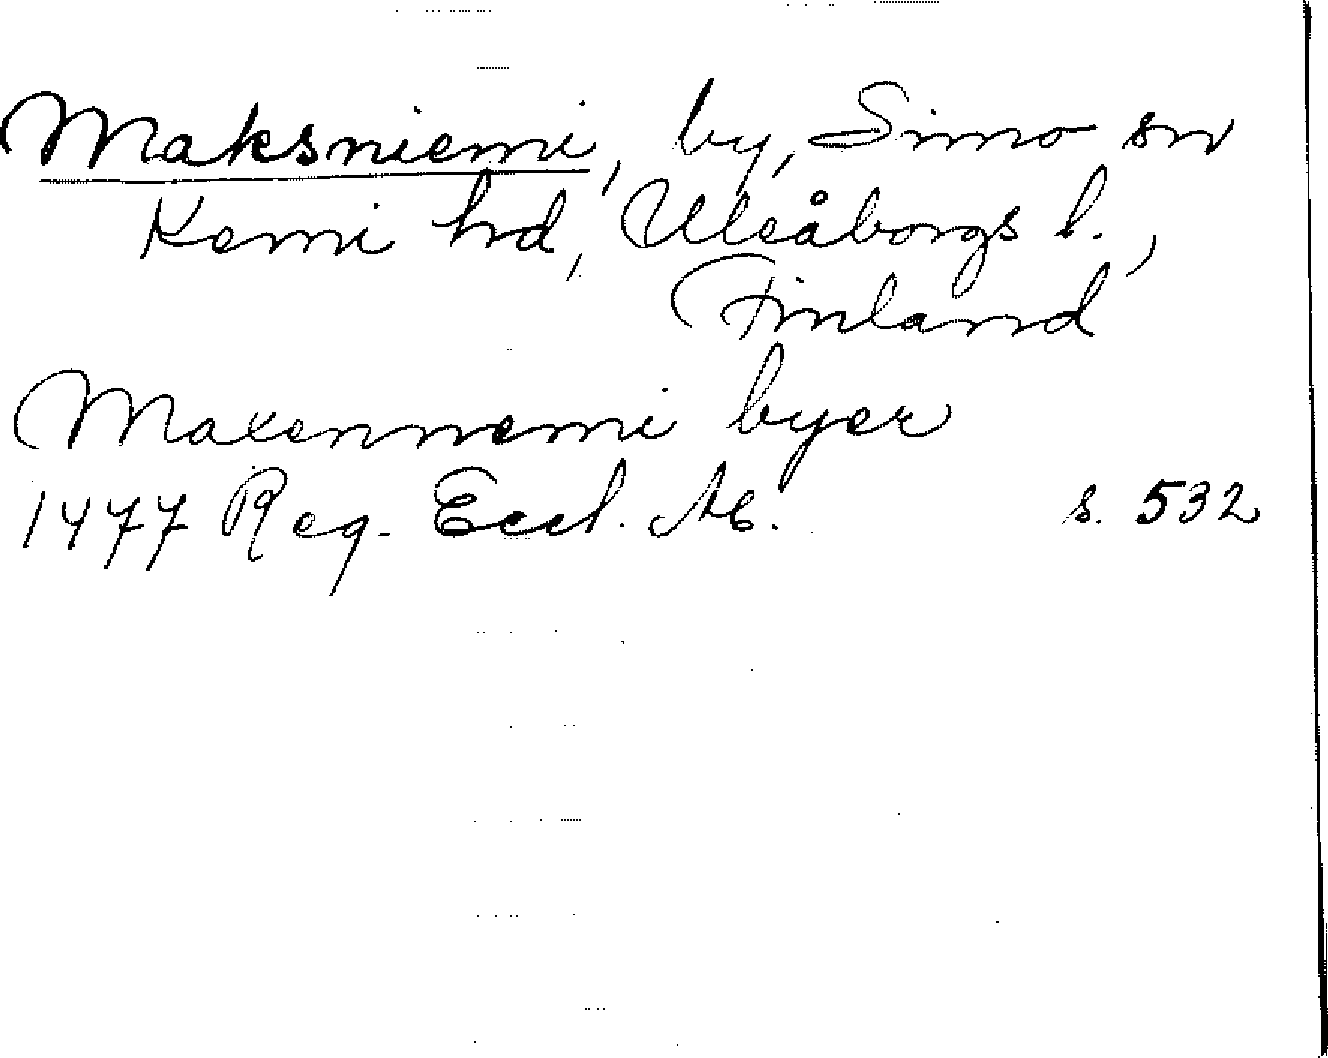 Maksniemi, by, Simo sn
Kemi hd, Uleåborgs l.,
Finland
Maxennemi byer
1477 Reg. Eccl. Ab. s. 532